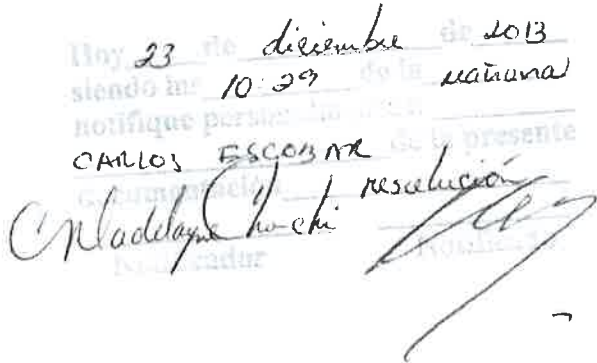 Hoy 23 de diciembre de 2013
siendo las 10:29 de la mañana
notifique personalmente
CARLOS ESCOBAR de la presente
documentación resolución
Notificador Notificado